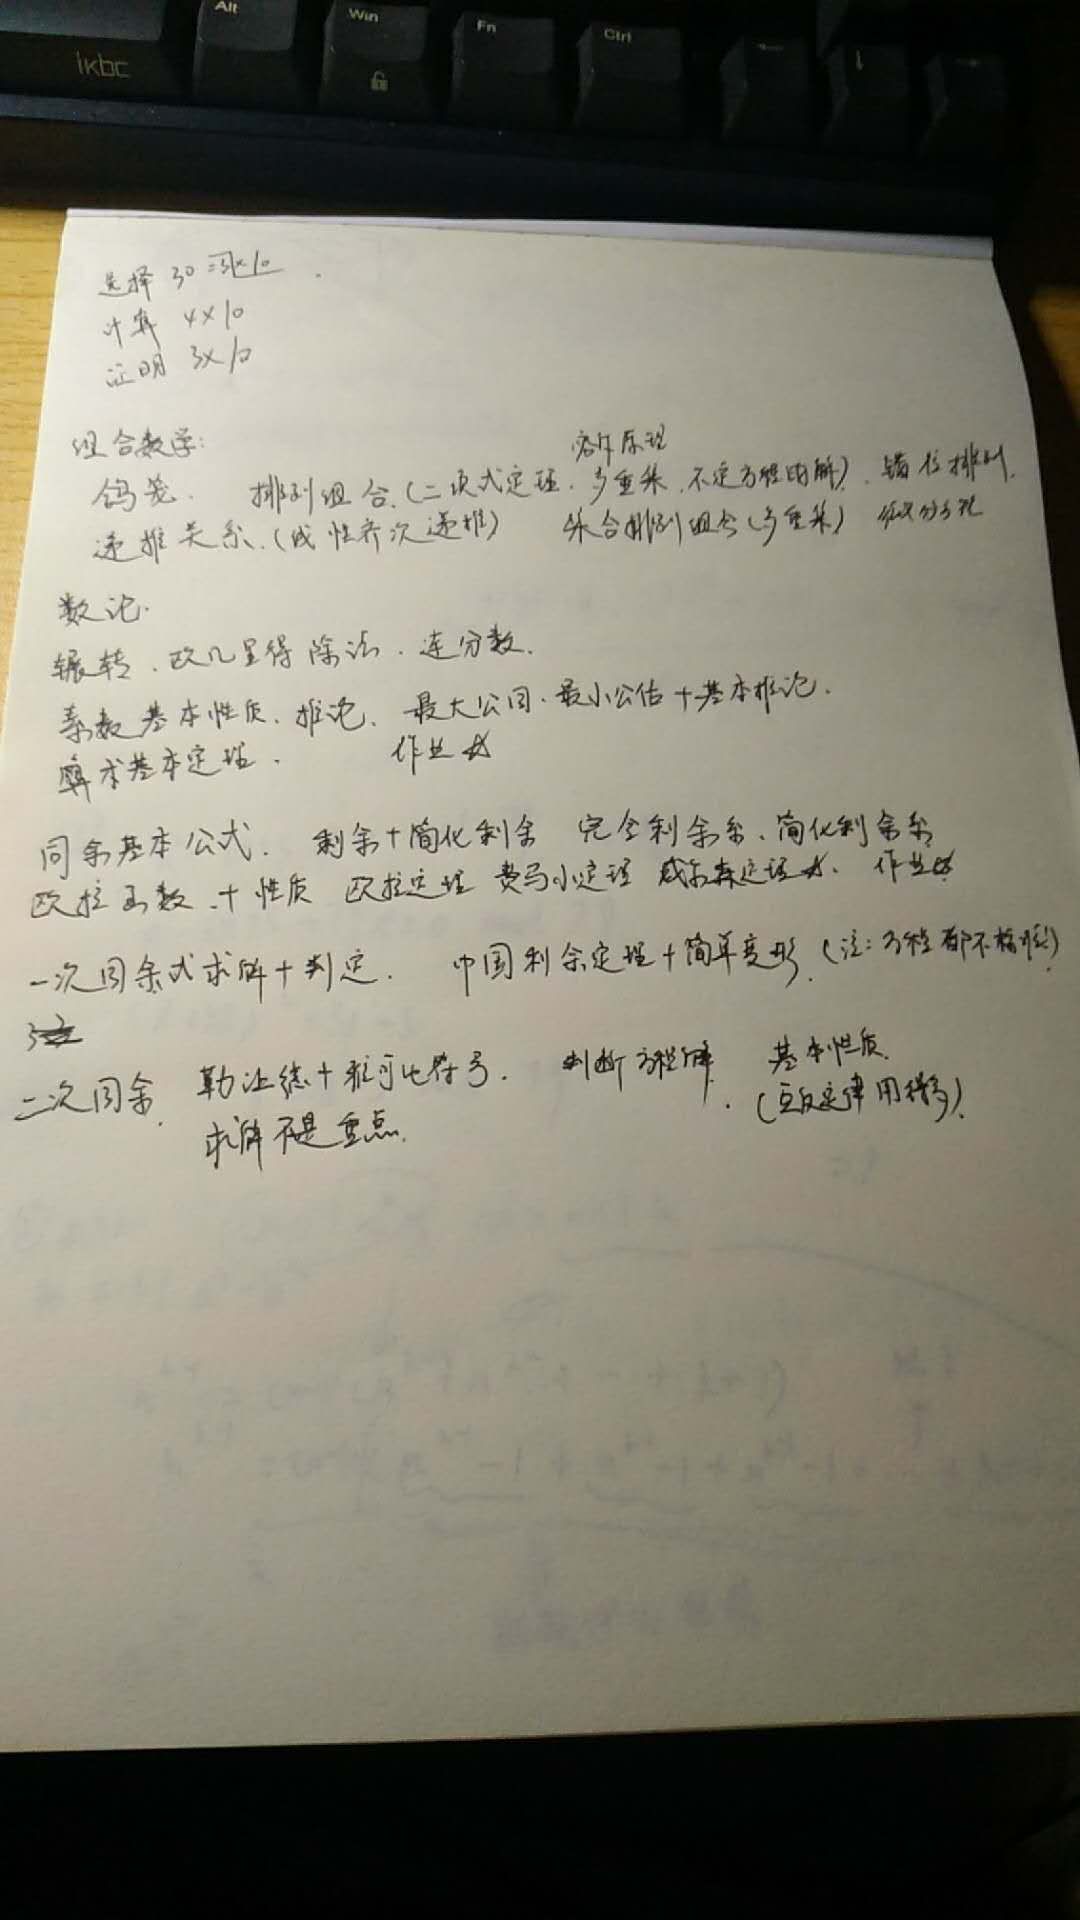 Alt
Win
Fn
Ctrl
ikbc
选择 30 = 3×10
计算 4×10
证明 3×10
组合数学:
容斥原理
鸽笼. 排列组合.(二项式定理. 多重集. 不定方程的解). 错位排列.
递推关系.(线性齐次递推) 集合排列组合(多重集)
数论.
辗转. 欧几里得除法. 连分数.
素数基本性质. 推论. 最大公因. 最小公倍+基本推论.
算术基本定理. 作业☆
同余基本公式. 剩余+简化剩余 完全剩余系、简化剩余系
欧拉函数.+性质 欧拉定理 费马小定理 威尔森定理☆. 作业☆
一次同余式求解+判定. 中国剩余定理+简单变形.(注:方程都不标准)
二次同余. 勒让德+雅可比符号. 判断方程解. 基本性质.
求解不是重点. (互反定律用得多).